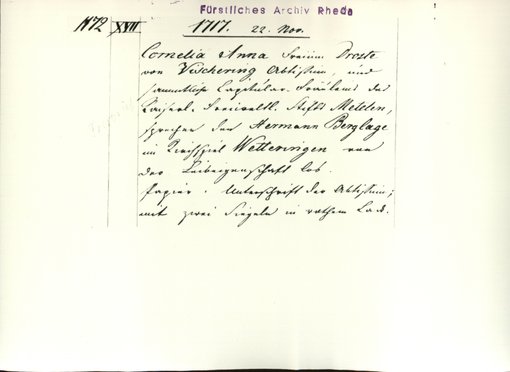 Fürstliches Archiv Rheda
1172 XVII 1717. 22. Nov.
Cornelia Anna Freiin Droste
von Vischering Abtissin, und
sammtliche Capitular-Fräulens des
Kaiserl. freiweltl. Stifts Metelen,
sprechen den Hermann Berglage
im Kirchspiel Wetteringen von
der Leibeigenschaft los.
Papier. Unterschrift der Abtissin;
mit zwei Siegeln in rothem Lack.